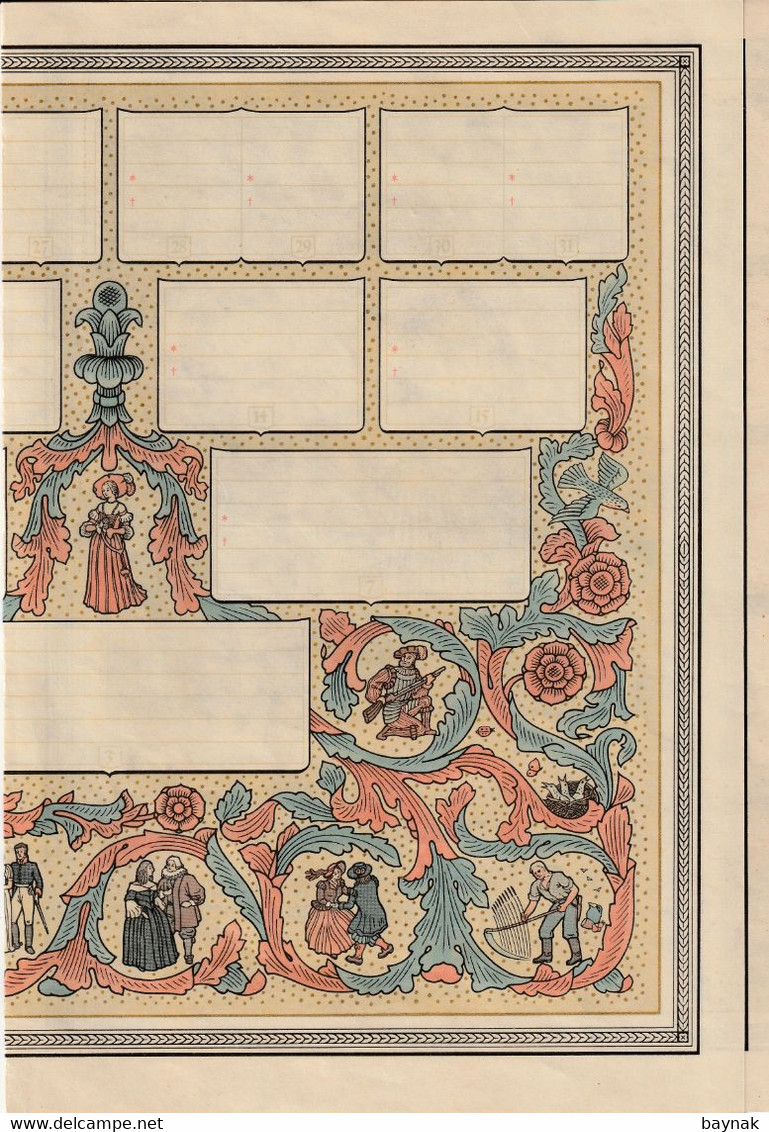 * *
† †
* *
† †
27 28 29 30 31
*
†
*
†
14 15
*
†
7
3
Delcampe.net
baynak